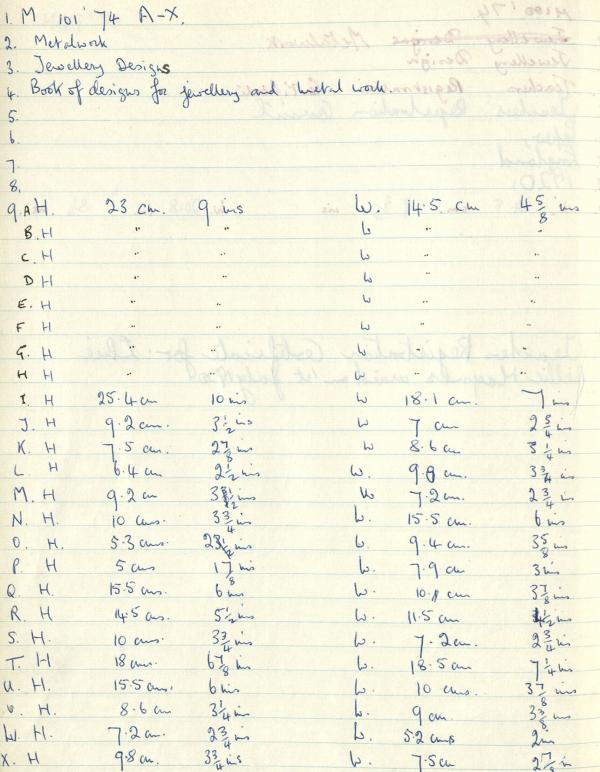 1. M 101'74 A-X.
2. Metalwork
3. Jewellery Designs
4. Book of designs for jewellery and metal work.
5.
6.
7.
8.
9. A H. 23 cm. 9 ins W. 14.5 cm 4 5/8 ins
B. H " " W " "
C. H " " W " "
D H " " W " "
E. H " " W " "
F H " " W " "
G. H " " W " "
H H " " W " "
I. H 25.4 cm 10 ins W 18.1 cm. 7 ins
J. H 9.2 cm. 3 1/2 ins W 7 cm 2 3/4 ins
K. H 7.5 cm. 2 7/8 ins W 8.6 cm 3 1/4 ins
L. H 6.4 cm 2 1/2 ins W. 9.8 cm. 3 3/4 ins
M. H 9.2 cm 3 1/2 ins W 7.2 cm. 2 3/4 ins
N. H. 10 cms. 3 3/4 ins W. 15.5 cm 6 ins
O. H. 5.3 cms. 2 1/2 ins W. 9.4 cm. 3 5/8 ins
P H 5 cms 1 7/8 ins W. 7.9 cm 3 ins
Q H. 15.5 cms. 6 ins W. 10.1 cm 3 7/8 ins
R H. 14.5 cms. 5 1/2 ins W. 11.5 cm 4 1/2 ins
S. H. 10 cms. 3 3/4 ins W. 7.2 cm. 2 3/4 ins
T. H 18 cms. 6 7/8 ins W. 18.5 cm 7 1/4 ins
U. H. 15.5 cms. 6 ins W. 10 cms. 3 7/8 ins
V. H. 8.6 cm 3 1/4 ins W. 9 cm 3 3/8 ins
W. H. 7.2 cm. 2 3/4 ins W. 5.2 cms 2 in
X. H 9.8 cm. 3 3/4 ins W. 7.5 cm 2 7/8 in